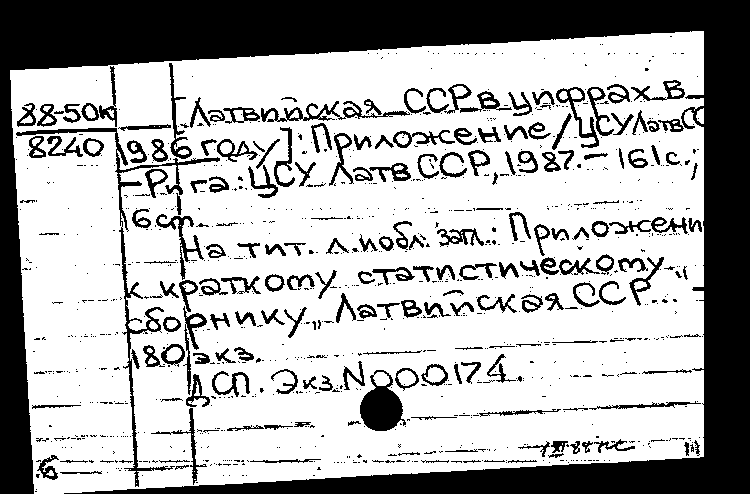 88-50к
8240
[Латвийская ССР в цифрах в
1986 году]: Приложение / ЦСУ Латв СС
- Рига: ЦСУ Латв ССР, 1987. - 161 с.;
16 cm.
На тит. л. и обл. загл.: Приложени
к краткому статистическому
сборнику „Латвийская ССР... -
180 экз.
СП. Экз N000174.
б